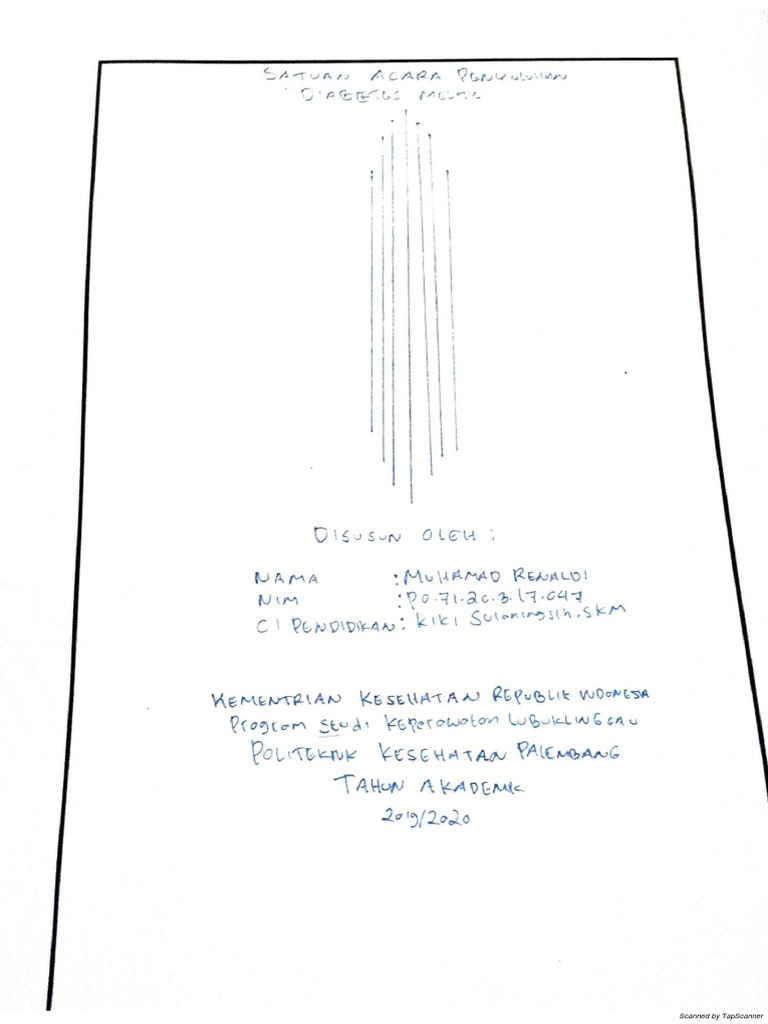 SATUAN ACARA PENYULUHAN
DIABETES
DISUSUN OLEH :
NAMA : MUHAMAD RENALDI
NIM : PO.71.20.3.17.047
CI PENDIDIKAN : KIKI Sulaningsih.SKM
KEMENTRIAN KESEHATAN REPUBLIK INDONESIA
Program Studi Keperawatan LUBUKLINGGAU
POLITEKNIK KESEHATAN PALEMBANG
TAHUN AKADEMIK
2019/2020
Scanned by TapScanner